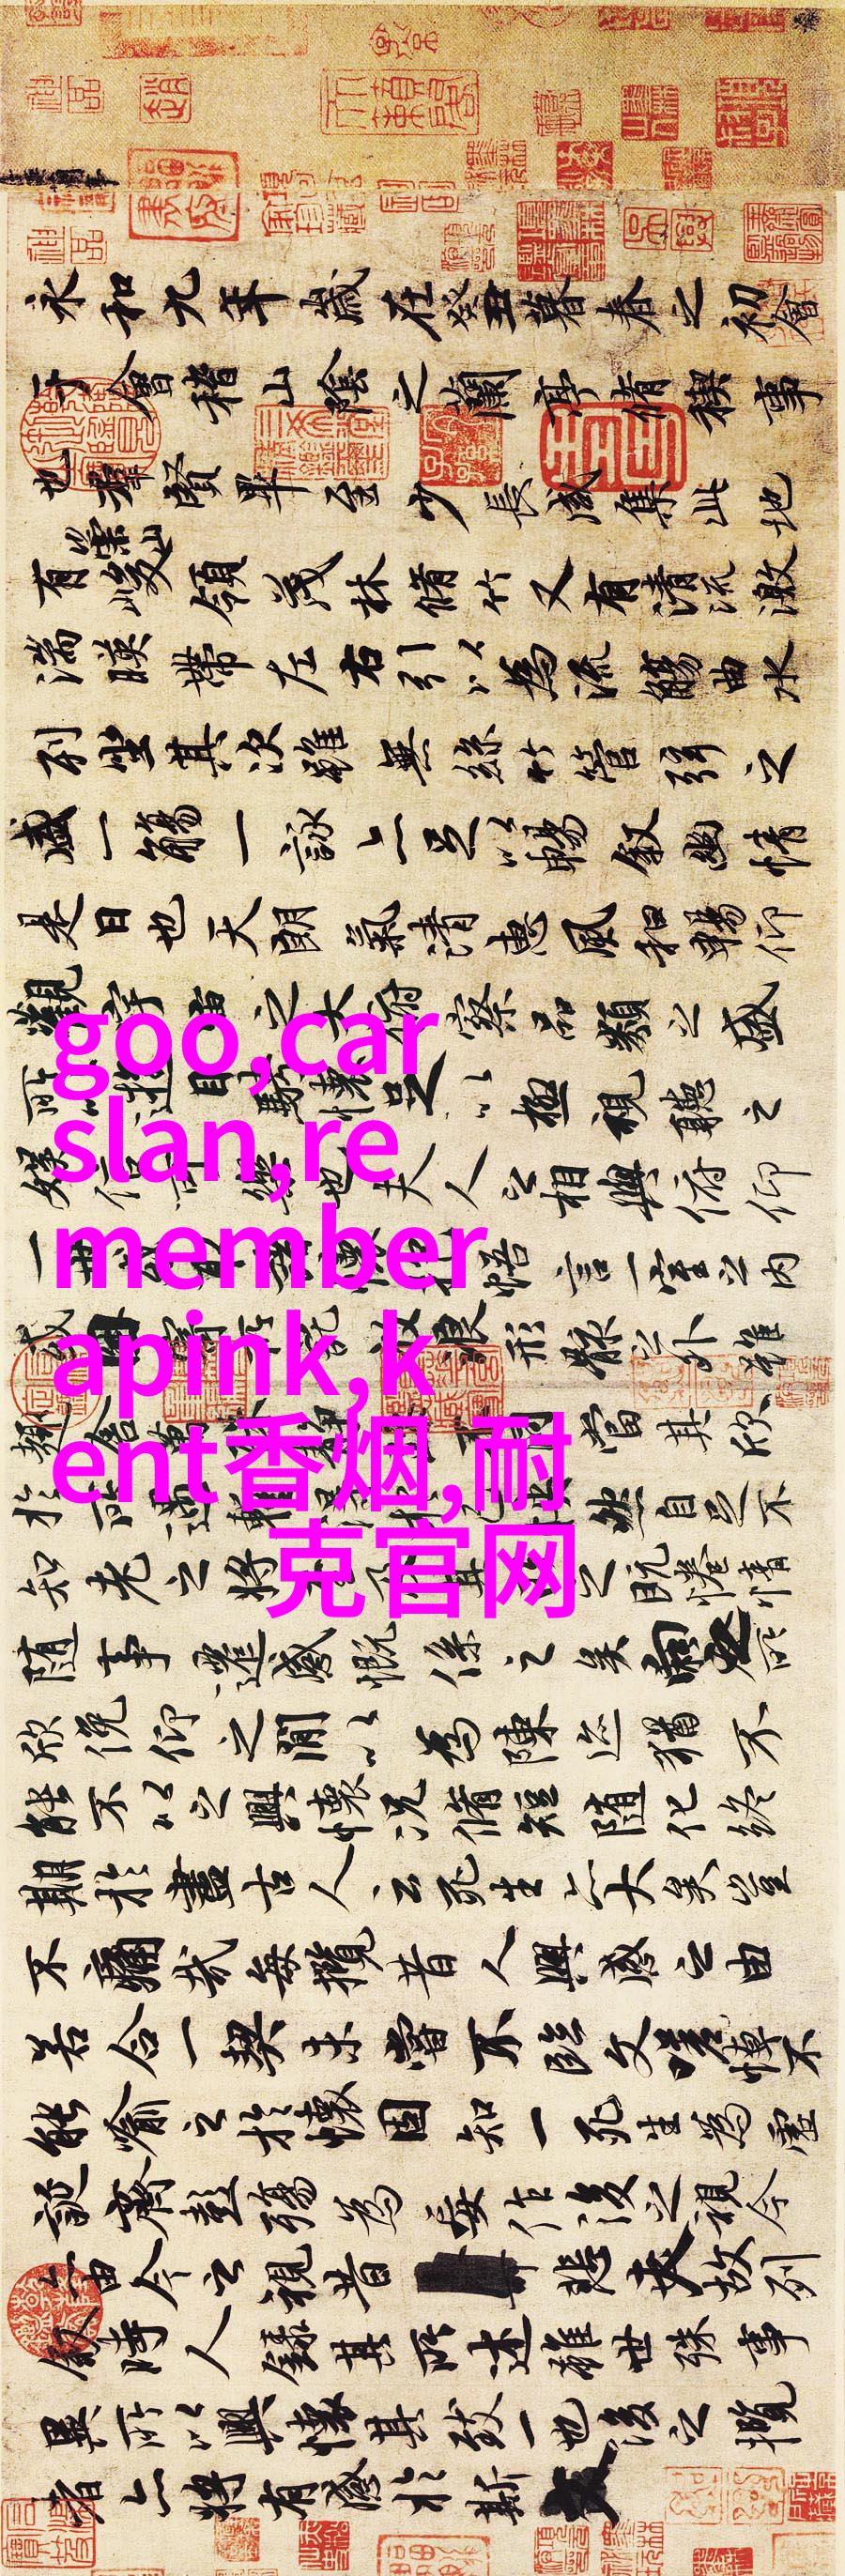 永和九年歲在癸丑暮春之初會
于會稽山陰之蘭亭脩禊事
也羣賢畢至少長咸集此地
崇山
有峻領茂林脩竹又有清流激
湍暎帶左右引以為流觴曲水
列坐其次雖無絲竹管弦之
盛一觴一詠亦足以暢敘幽情
是日也天朗氣清惠風和暢仰
觀宇宙之大俯察品類之盛
所以遊目騁懷足以極視聽之
娛信可樂也夫人之相與俯仰
一世或取諸懷抱悟言一室之內
或因寄所託放浪形骸之外雖
趣舍萬殊靜躁不同當其欣
於所遇暫得於己怏然自足不
知老之將至及其所之既惓情
隨事遷感慨係之矣向之所
欣俛仰之閒以為陳迹猶不
能不以之興懷況脩短隨化終
期於盡古人云死生亦大矣豈
不痛哉每攬昔人興感之由
若合一契未嘗不臨文嗟悼不
能喻之於懷固知一死生為虛
誕齊彭殤為妄作後之視今
亦由今之視昔悲夫故列
敘時人錄其所述雖世殊事
異所以興懷其致一也後之攬
者亦將有感於斯文
goo,car
slan,re
member
apink,k
ent香烟,耐
克官网